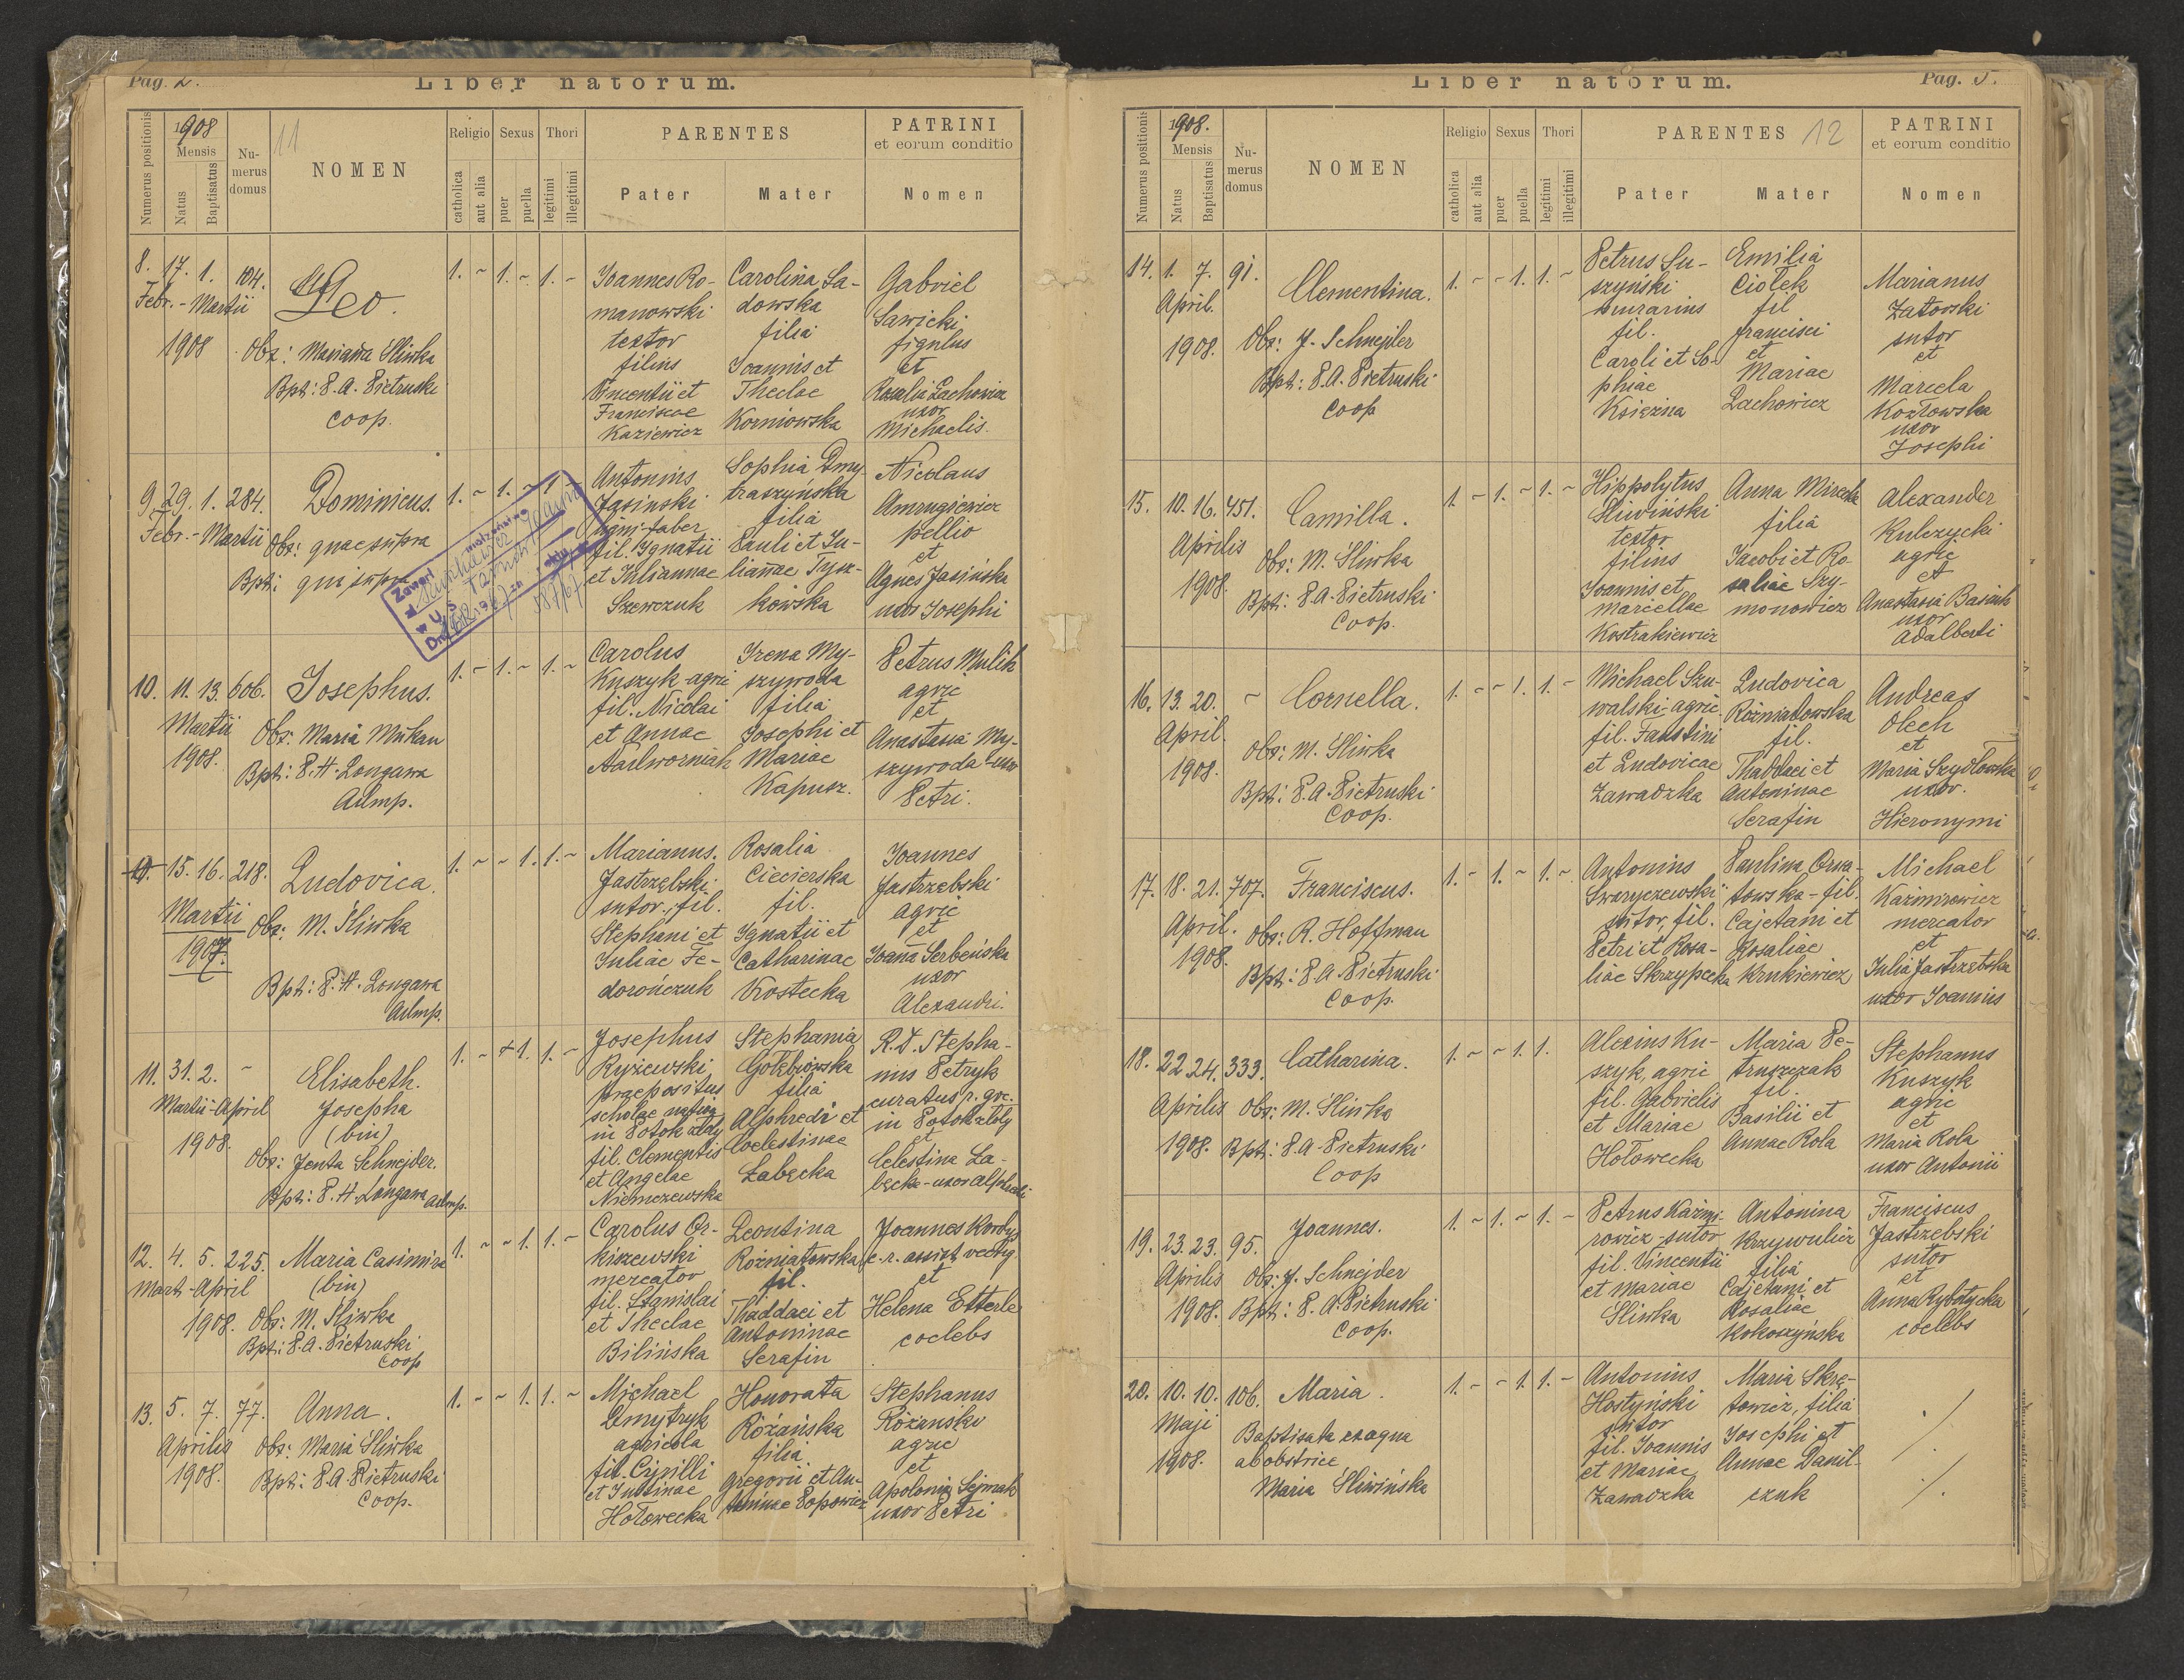 Pag. 2.
Liber natorum.
Numerus positionis
1908
Mensis
Natus
Baptisatus
Nu-
merus
domus
11
NOMEN
Religio
catholica
aut alia
Sexus
puer
puella
Thori
legitimi
illegitimi
PARENTES
Pater
Mater
PATRINI
et eorum conditio
Nomen
8. 17. 1. 104.
Febr. - Martii
1908
Leo.
Obs: Marianna Śliwka
Bpt: P. A. Pietruski
coop.
1. ~ 1. ~ 1. ~
Joannes Ro-
manowski
textor
filius
Vincentii et
Franciscae
Kaziewicz
Carolina Sa-
dowska
filia
Joannis et
Theclae
Korniowska
Gabriel
Sawicki
figulus
et
Rosalia Lachowicz
uxor
Michaelis.
9. 29. 1. 284.
Febr. - Martii
Dominicus.
Obs: quae supra
Bpt: qui supra
1. ~ 1. ~ 1. ~
Antonius
Jasinski
lign. faber
fil. Ignatii
et Juliannae
Szewczuk
Sophia Dmy-
traszyńska
filia
Pauli et Ju-
liannae Tysz-
kowska
Nicolaus
Amrugiewicz
pellio
et
Agnes Jasińska
uxor Josephi
Zawarł małżeństwo
z
w U S
Dn.
10. 11. 13. 606.
Martii
1908.
Josephus.
Obs: Maria Mukan
Bpt: P. H. Longawa
Admp.
1. ~ 1. ~ 1. ~
Carolus
Kuszyk - agric
fil. Nicolai
et Annae
Nadworniak
Irena My-
szywoda
filia
Josephi et
Mariae
Kapusz.
Petrus Mulik
agric
et
Anastasia My-
szywoda - uxor
Petri.
15. 16. 218.
Martii
1907.
Ludovica.
Obs: M. Śliwka
Bpt: P. H. Longawa
Admp.
1. ~ ~ 1. 1. ~
Marianus.
Jastrzębski
sutor, fil.
Stephani et
Juliae Fe-
dorończuk
Rosalia
Ciecierska
fil.
Ignatii et
Catharinae
Kostecka
Joannes
Jastrzebski
agric
et
Joanna Serbeńska
uxor
Alexandri.
11. 31. 2. ~
Martii - April
1908.
Elisabeth.
Josepha
(bin)
Obs: Jenta Schnejder.
Bpt: P. H. Longawa Admp.
1. ~ 1. 1. ~
Josephus
Ryżewski
praepositus
scholae
in Potok złoty
fil. Clementis
et Angelae
Niemczewska
Stephania
Gołębiowska
filia
Alphredi et
Coelestinae
Łabęcka
R. D. Stepha-
nus Petryk
curatus r. gr.
in Potok złoty
et
Celestina Ła-
bęcka - uxor Alphredi
12. 4. 5. 225.
Mart - April
1908.
Maria Casimira
(bin)
Obs: M. Śliwka
Bpt: P. A. Pietruski
Coop
1. ~ ~ 1. 1. ~
Carolus Or-
kiszewski
mercator
fil. Stanislai
et Theclae
Bilińska
Leontina
Rózniatowska
fil.
Thaddaei et
Antoninae
Serafin
Joannes Kordys
c. r. assist vectig
et
Helena Etterle
coelebs
13. 5. 7. 77.
Aprilis
1908.
Anna.
Obs: Maria Śliwka
Bpt: P. A. Pietruski
Coop.
1. ~ ~ 1. 1. ~
Michael
Dmytryk
agricola
fil. Cyrilli
et Justinae
Hołowecka
Honorata
Różańska
filia
Gregorii et An-
toninae Popowicz
Stephanus
Różanski
agric
et
Apolonia Sejmak
uxor Petri
Liber natorum.
Pag. 5.
Numerus positionis
1908.
Mensis
Natus
Baptisatus
Nu-
merus
domus
NOMEN
Religio
catholica
aut alia
Sexus
puer
puella
Thori
legitimi
illegitimi
PARENTES 12
Pater
Mater
PATRINI
et eorum conditio
Nomen
14. 1. 7. 91.
April.
1908.
Clementina.
Obs: J. Schnejder
Bpt: P. A. Pietruski
Coop
1. ~ ~ 1. 1. ~
Petrus Su-
szyński
murarius
fil.
Caroli et So-
phiae
Księżna
Emilia
Ciołek
fil
francisci
et
Mariae
Lachowicz
Marianus
Zatorski
sutor
et
Marcela
Kozłowska
uxor
Josephi
15. 10. 16. 451.
Aprilis
1908.
Camilla.
Obs: M. Śliwka
Bpt: P. A. Pietruski
Coop.
1. ~ 1. ~ 1. ~
Hippolytus
Sliwiński
textor
filius
Joannis et
Marcellae
Kostrakiewicz
Anna Mirecka
filia
Jacobi et Ro-
saliae Szy-
monowicz
Alexander
Kulczycki
agric
et
Anastasia Basiuk
uxor
Adalberti
16. 13. 20. ~
April.
1908.
Cornella.
Obs: M. Śliwka
Bpt: P. A. Pietruski
Coop.
1. ~ ~ 1. 1. ~
Michael Szu-
walski - agric.
fil. Faustini
et Ludovicae
Zawadzka
Ludovica
Rózniatowska
fil.
Thaddaei et
Antoninae
Serafin
Andreas
Olech
et
Maria Szydłowska
uxor.
Hieronymi
17. 18. 21. 707.
April.
1908.
Franciscus.
Obs: R. Hoffman
Bpt: P. A. Pietruski
Coop.
1. ~ 1. ~ 1. ~
Antonius
Swaryczewski
sutor, fil.
Petri et Rosa-
liae Skrzypecka
Paulina Orsa-
towska - fil.
Cajetani et
Rosaliae
Krukiewicz
Michael
Kazimirowicz
mercator
et
Julia Jastrzębska
uxor Joannis
18. 22 24. 333.
Aprilis
1908.
Catharina.
Obs: M. Śliwka
Bpt: P. A. Pietruski
Coop
1. ~ ~ 1. 1.
Alexius Ku-
szyk, agric
fil. Gabrielis
et Mariae
Hołowecka
Maria Pe-
truszczak
fil.
Basilii et
Annae Rola
Stephanus
Kuszyk
agric
et
Maria Rola
uxor Antonii
19. 23. 23. 95.
Aprilis
1908.
Joannes.
Obs: J. Schnejder
Bpt: P. A. Pietruski
Coop.
1. ~ 1. ~ 1. ~
Petrus Kazmi-
rowicz - sutor
fil. Vincentii
et Mariae
Sliwka
Antonina
Krzywulicz
filia
Cajetani et
Rosaliae
Kokoszyńska
Franciscus
Jastrzebski
sutor
et
Anna Rybotycka
coelebs
20. 10. 10. 106.
Maji
1908.
Maria.
Baptisata ex aqua
ab obstrice
Maria Śliwińska
1. ~ ~ 1. 1. ~
Antonius
Hostyński
sutor
fil. Joannis
et Mariae
Zawadzka
Maria Skrę-
towicz, filia
Josephi et
Annae Danil-
czuk